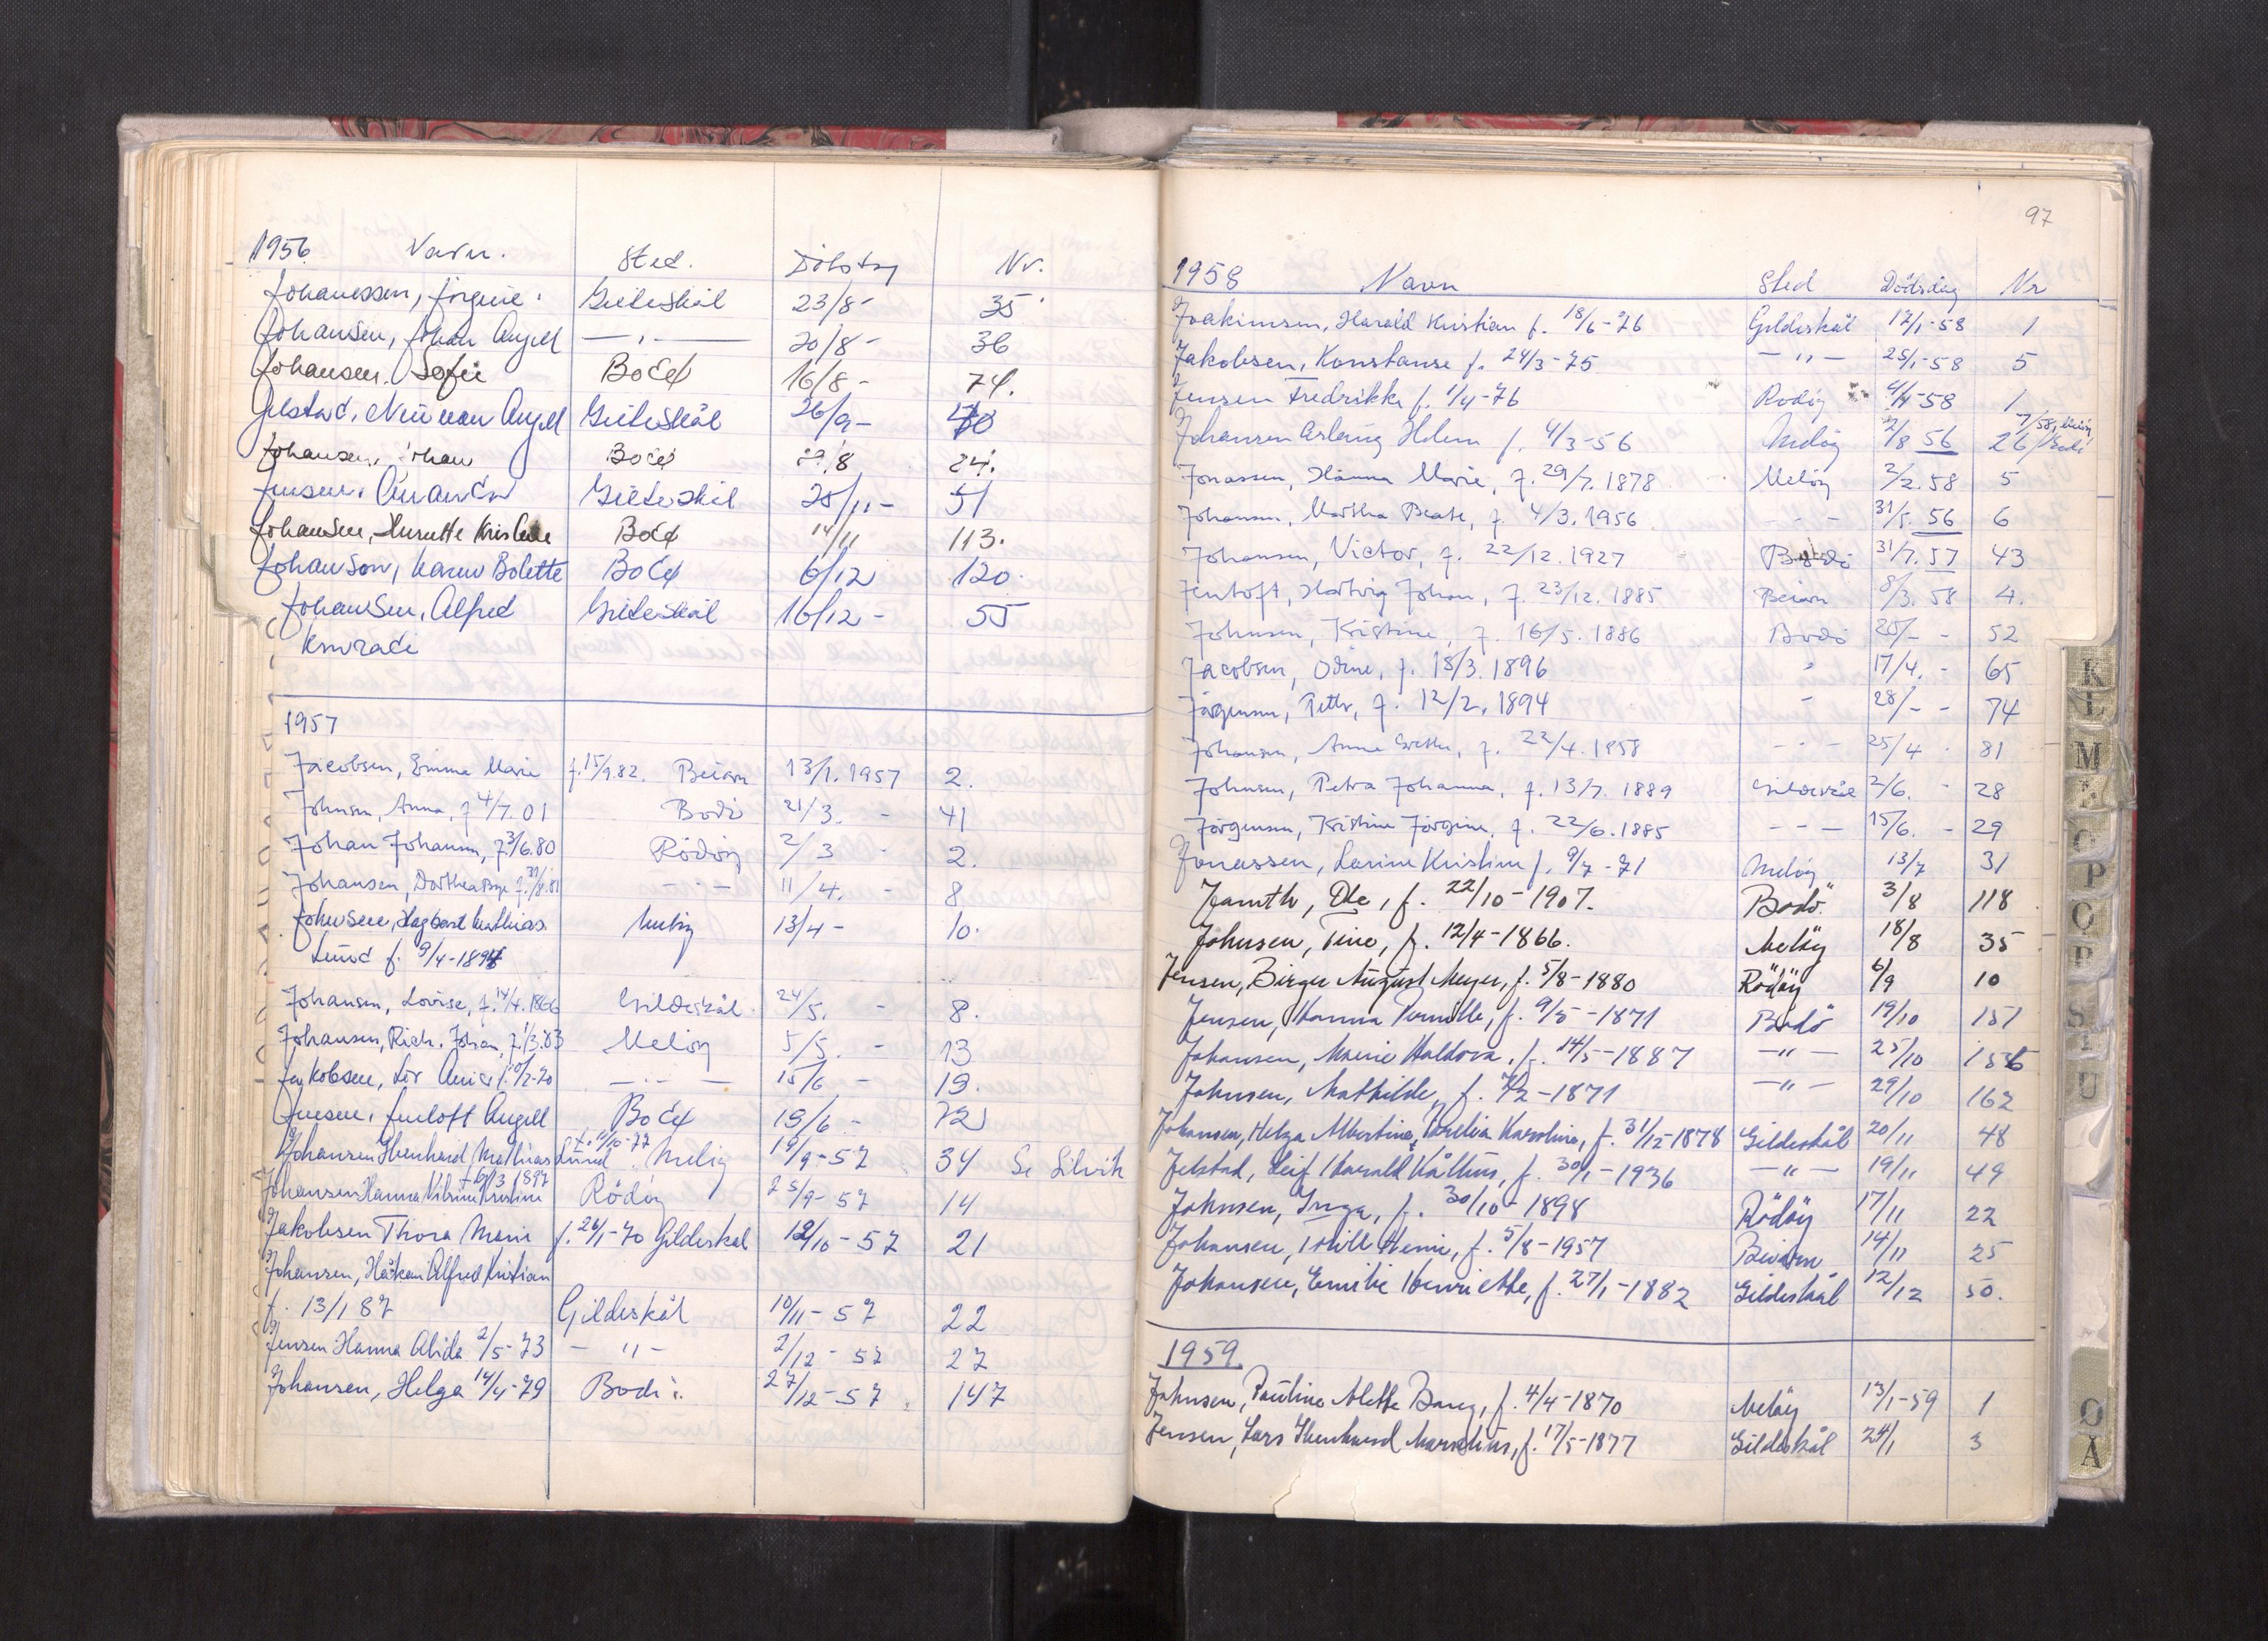 1956 Navn. Sted. Dödsdag Nr.
Johanessen, Jörgine. Gildeskål 23/8 - 35
Johansen, Johan Angell — " — 20/8 - 36
Johansen. Sofie Bodø 16/8 - 74.
Jelstad. Angell Gildeskål 26/9 -
Johansen, Johan Bodø /8 24.
Jensen. Amanda Gildeskål 28/11 - 51
Johansen, Kristine Bodø 14/11 113.
Johanson, Karen Bolette Bodø 6/12 120.
Johansen, Alfred Gildeskål 16/12 - 55
Konradi
1957
Jacobsen, Emma Marie f. 15/9.82. Beiarn 13/1.1957 2.
Johnsen, Anna, f 4/7.01 Bodö 21/3. - 41
Johan Johansen, f. 3/6.80 Rödöy 2/3 - 2.
Johansen, Dorthea f. 31/8.81 - " - 11/4. - 8.
Johnsen, Dagbart Mathias Melöy 13/4 - 10.
Lund f. 9/4-1894
Johansen, Lovise, f. 14/4.1866 Gildeskål 24/5. - 8.
Johansen, Rich. Johan, f. 1/3.83 Melöy 5/5. - 13
Jakobsen, — " — 15/6 - 19.
Jensen. Jentoft Angell Bodø 19/6 - 72
Johansen Ebenhard Mathias Lund f. 11/10-77 Melöy 19/9-57 34 Se Lilvik
Johansen Hanna Kristine f. 6/3 1897 Rödöy 25/9-57 14
Jakobsen Thora Marie f. 26/1-70 Gildeskål 12/10-57 21
Johansen, Håkon Alfred Kristian
f. 13/1 87 Gildeskål 10/11-57 22
Jensen Hanna Alida 2/5-73 — " — 2/12-57 27
Johansen, Helga 14/4-79 Bodö. 27/12-57 147
97
1958 Navn Sted Dödsdag Nr
Joakimsen, Harald Kristian f. 18/6-76 Gildeskål 12/1-58 1
Jakobsen, Konstanse f. 24/3-75 — " — 25/1-58 5
Jensen Fredrikke f. 1/4-76 Rödöy 4/4-58 1
Johansen Aslaug Helen f. 4/3-56 Melöy 2/8 56 26
Jonassen, Hanna Marie, f. 29/7.1878 Melöy 2/2.58 5
Johansen, Martha Beate, f. 4/3.1956 - - - 31/5.56 6
Johansen, Victor, f. 22/12.1927 Bodö 31/7.57 43
Jentoft, Hartvig Johan, f. 23/12.1885 Beiarn 8/3.58 4.
Johnsen, Kristine, f. 16/5.1886 Bodö 20/- - 52
Jacobsen, Odine, f. 18/3.1896 " 17/4. - 65
Jörgensen, Petter, f. 12/2.1894 " 28/- - 74
Johansen, Anna Grethe, f. 22/4.1958 - " - 25/4 - 81
Johnsen, Petra Johanna, f. 13/7.1889 Gildeskål 2/6. - 28
Jörgensen, Kristine Jörgine, f. 22/6.1885 - - - 15/6. - 29
Jonassen, Larine Kristine f. 9/7-71 Melöy 13/7 31
Jamth, Ole, f. 22/10-1907. Bodö 3/8 118
Johnsen, Tine, f. 12/4-1866. Melöy 18/8 35
Jensen, Birger August Meyer, f. 5/8-1880 Rödöy 6/9 10
Jensen, Hanna Pernille, f. 9/5-1871 Bodö 19/10 151
Johansen, Marie Haldora, f. 14/5-1887 — " — 25/10 156
Johnsen, Mathilde, f. /2-1871 — " — 29/10 162
Johansen, Helga Albertine Karolina, f. 31/12-1878 Gildeskål 20/11 48
Jelstad, Leif Harald f. 30/1-1936 — " — 19/11 49
Johnsen, Inga, f. 30/10-1898 Rödöy 17/11 22
Johansen, f. 5/8-1957 Beiarn 14/11 25
Johansen, Emilie Henriette, f. 27/1-1882 Gildeskål 12/12 50.
1959
Johnsen, Pauline Alette f. 4/4-1870 Melöy 13/1-59 1
Jensen, Lars Ebenhard f. 17/5-1877 Gildeskål 24/1 3
K
L
M
O
P
S
U
Ø
Å